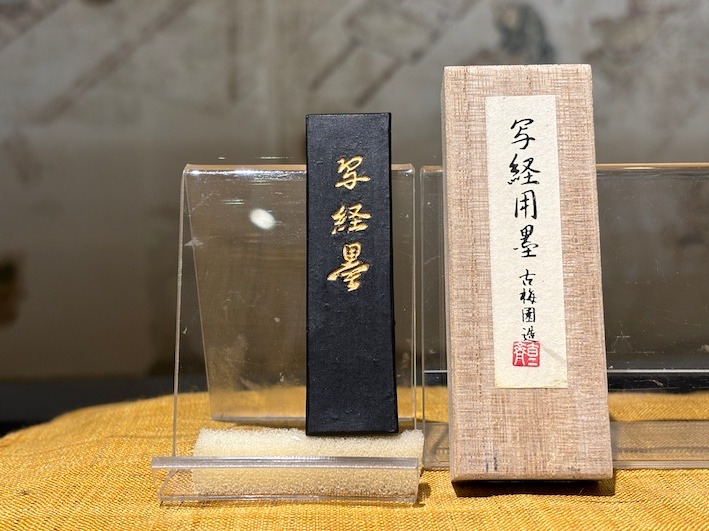 写経墨
写経用墨 古梅園造